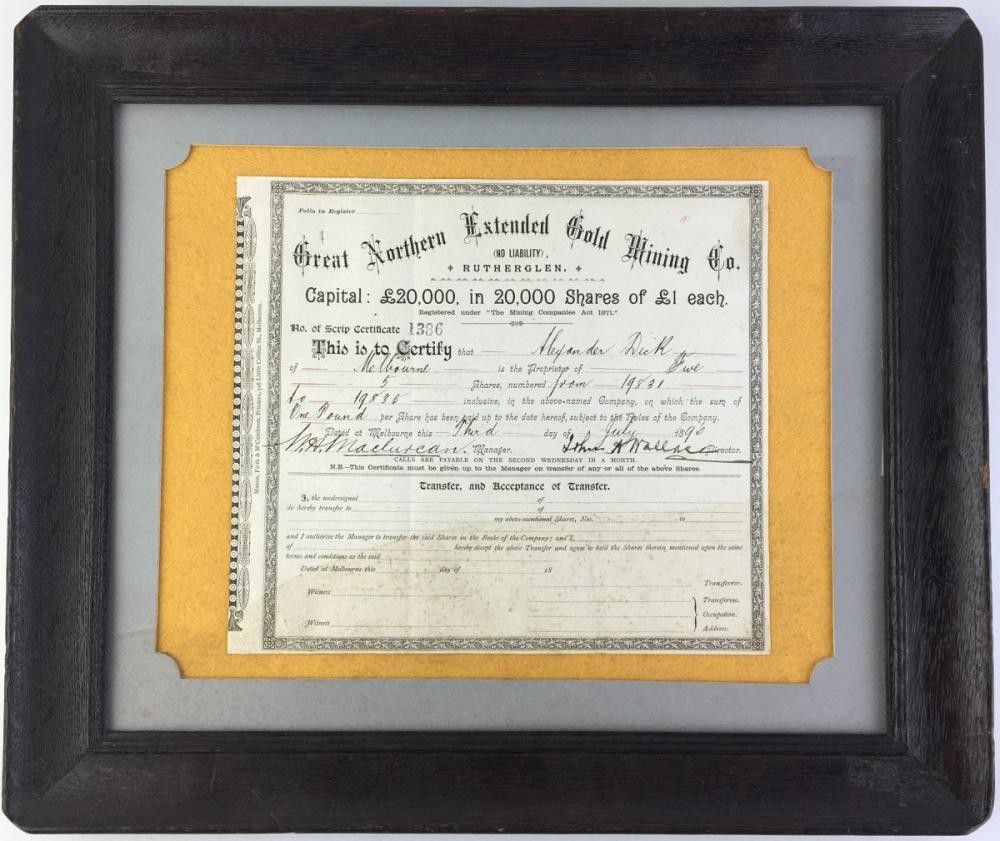 Folio in Register
Great Northern Extended Gold Mining Co.
(NO LIABILITY),
RUTHERGLEN.
Capital: £20,000, in 20,000 Shares of £1 each.
Registered under "The Mining Companies Act 1871."
No. of Scrip Certificate 1386
This is to Certify that Alexander Dick
of Melbourne is the Proprietor of Five
5 Shares, numbered from 19831
to 19835 inclusive, in the above-named Company, on which the sum of
One Pound per Share has been paid up to the date hereof, subject to the Rules of the Company.
Dated at Melbourne this Third day of July 189
Manager. John A Wallace Director.
CALLS ARE PAYABLE ON THE SECOND WEDNESDAY IN A MONTH.
N.B.—This Certificate must be given up to the Manager on transfer of any or all of the above Shares.
Transfer, and Acceptance of Transfer.
I, the undersigned of
do hereby transfer to of
my above-mentioned Shares, Nos. to
and I authorise the Manager to transfer the said Shares in the Books of the Company; and I,
of hereby accept the above Transfer and agree to hold the Shares therein mentioned upon the same
terms and conditions as the said
Dated at Melbourne this day of 18
Transferror.
Witness
Transferree.
Occupation.
Witness
Address.
Mason, Firth & M'Cutcheon, Printers, Little Collins St., Melbourne.